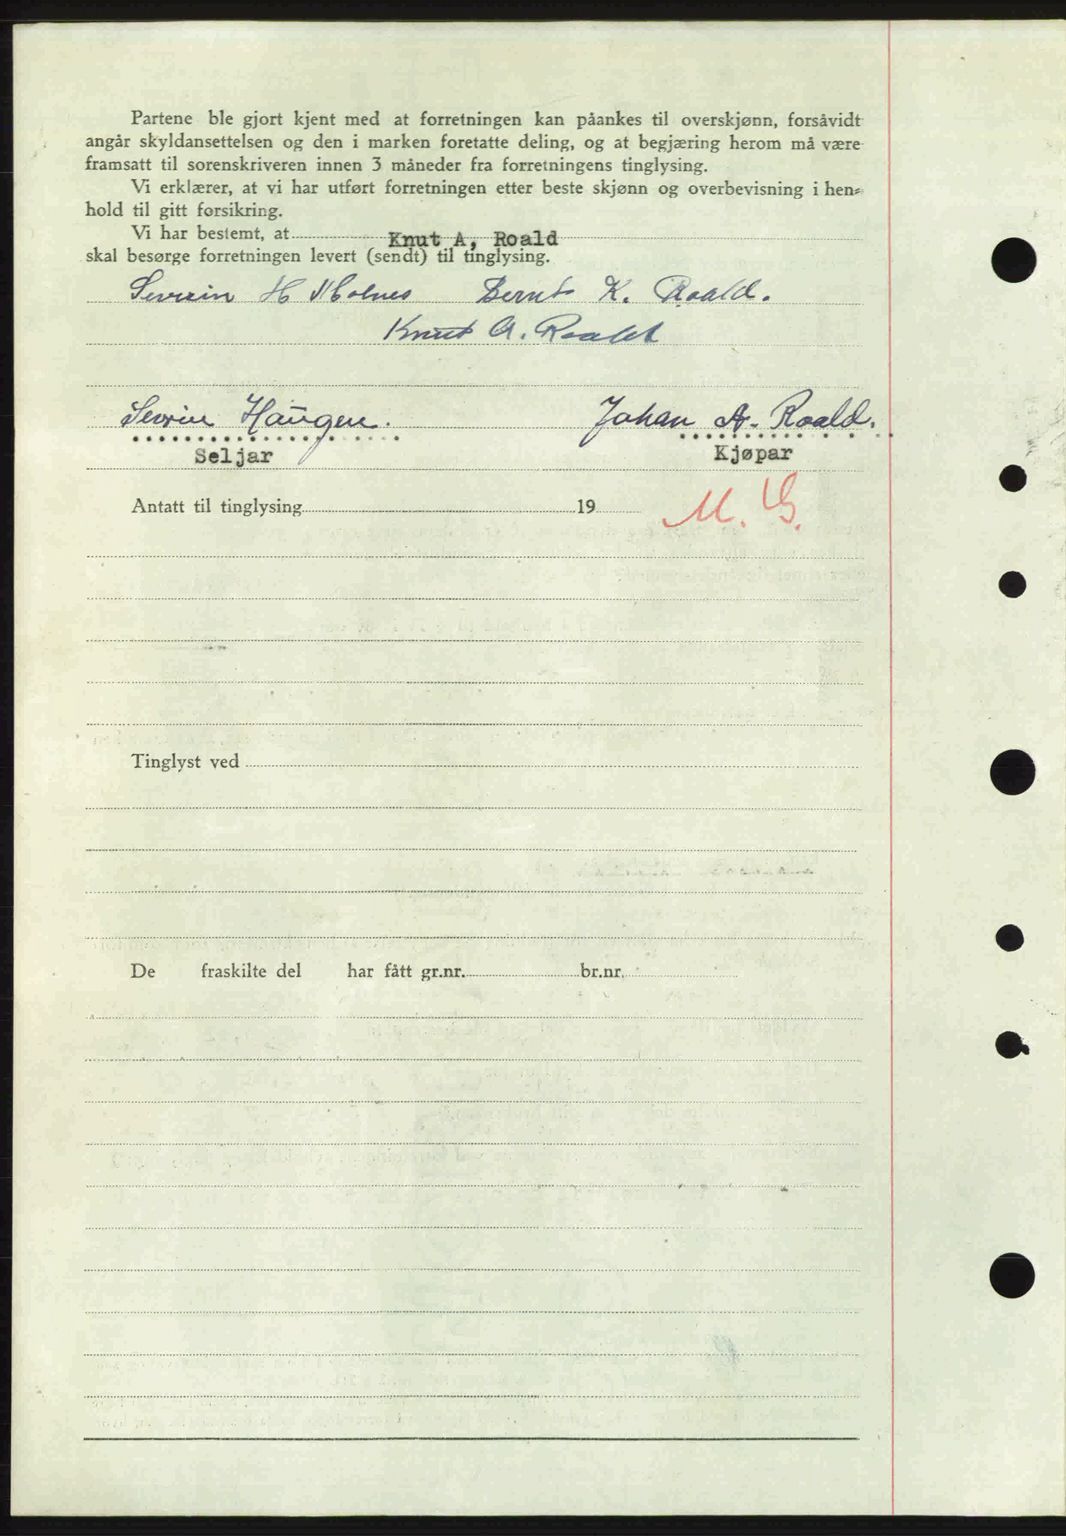 Partene ble gjort kjent med at forretningen kan påankes til overskjønn, forsåvidt
angår skyldansettelsen og den i marken foretatte deling, og at begjæring herom må være
framsatt til sorenskriveren innen 3 måneder fra forretningens tinglysing.
Vi erklærer, at vi har utført forretningen etter beste skjønn og overbevisning i hen-
hold til gitt forsikring.
Vi har bestemt, at Knut A, Roald
skal besørge forretningen levert (sendt) til tinglysing.
Severin H Molnes Bernt K. Roald.
Knut A. Roald
Sevrin Haugen. Johan A. Roald.
Seljar Kjøpar
Antatt til tinglysing 19 M. G.
Tinglyst ved
De fraskilte del har fått gr.nr. br.nr.